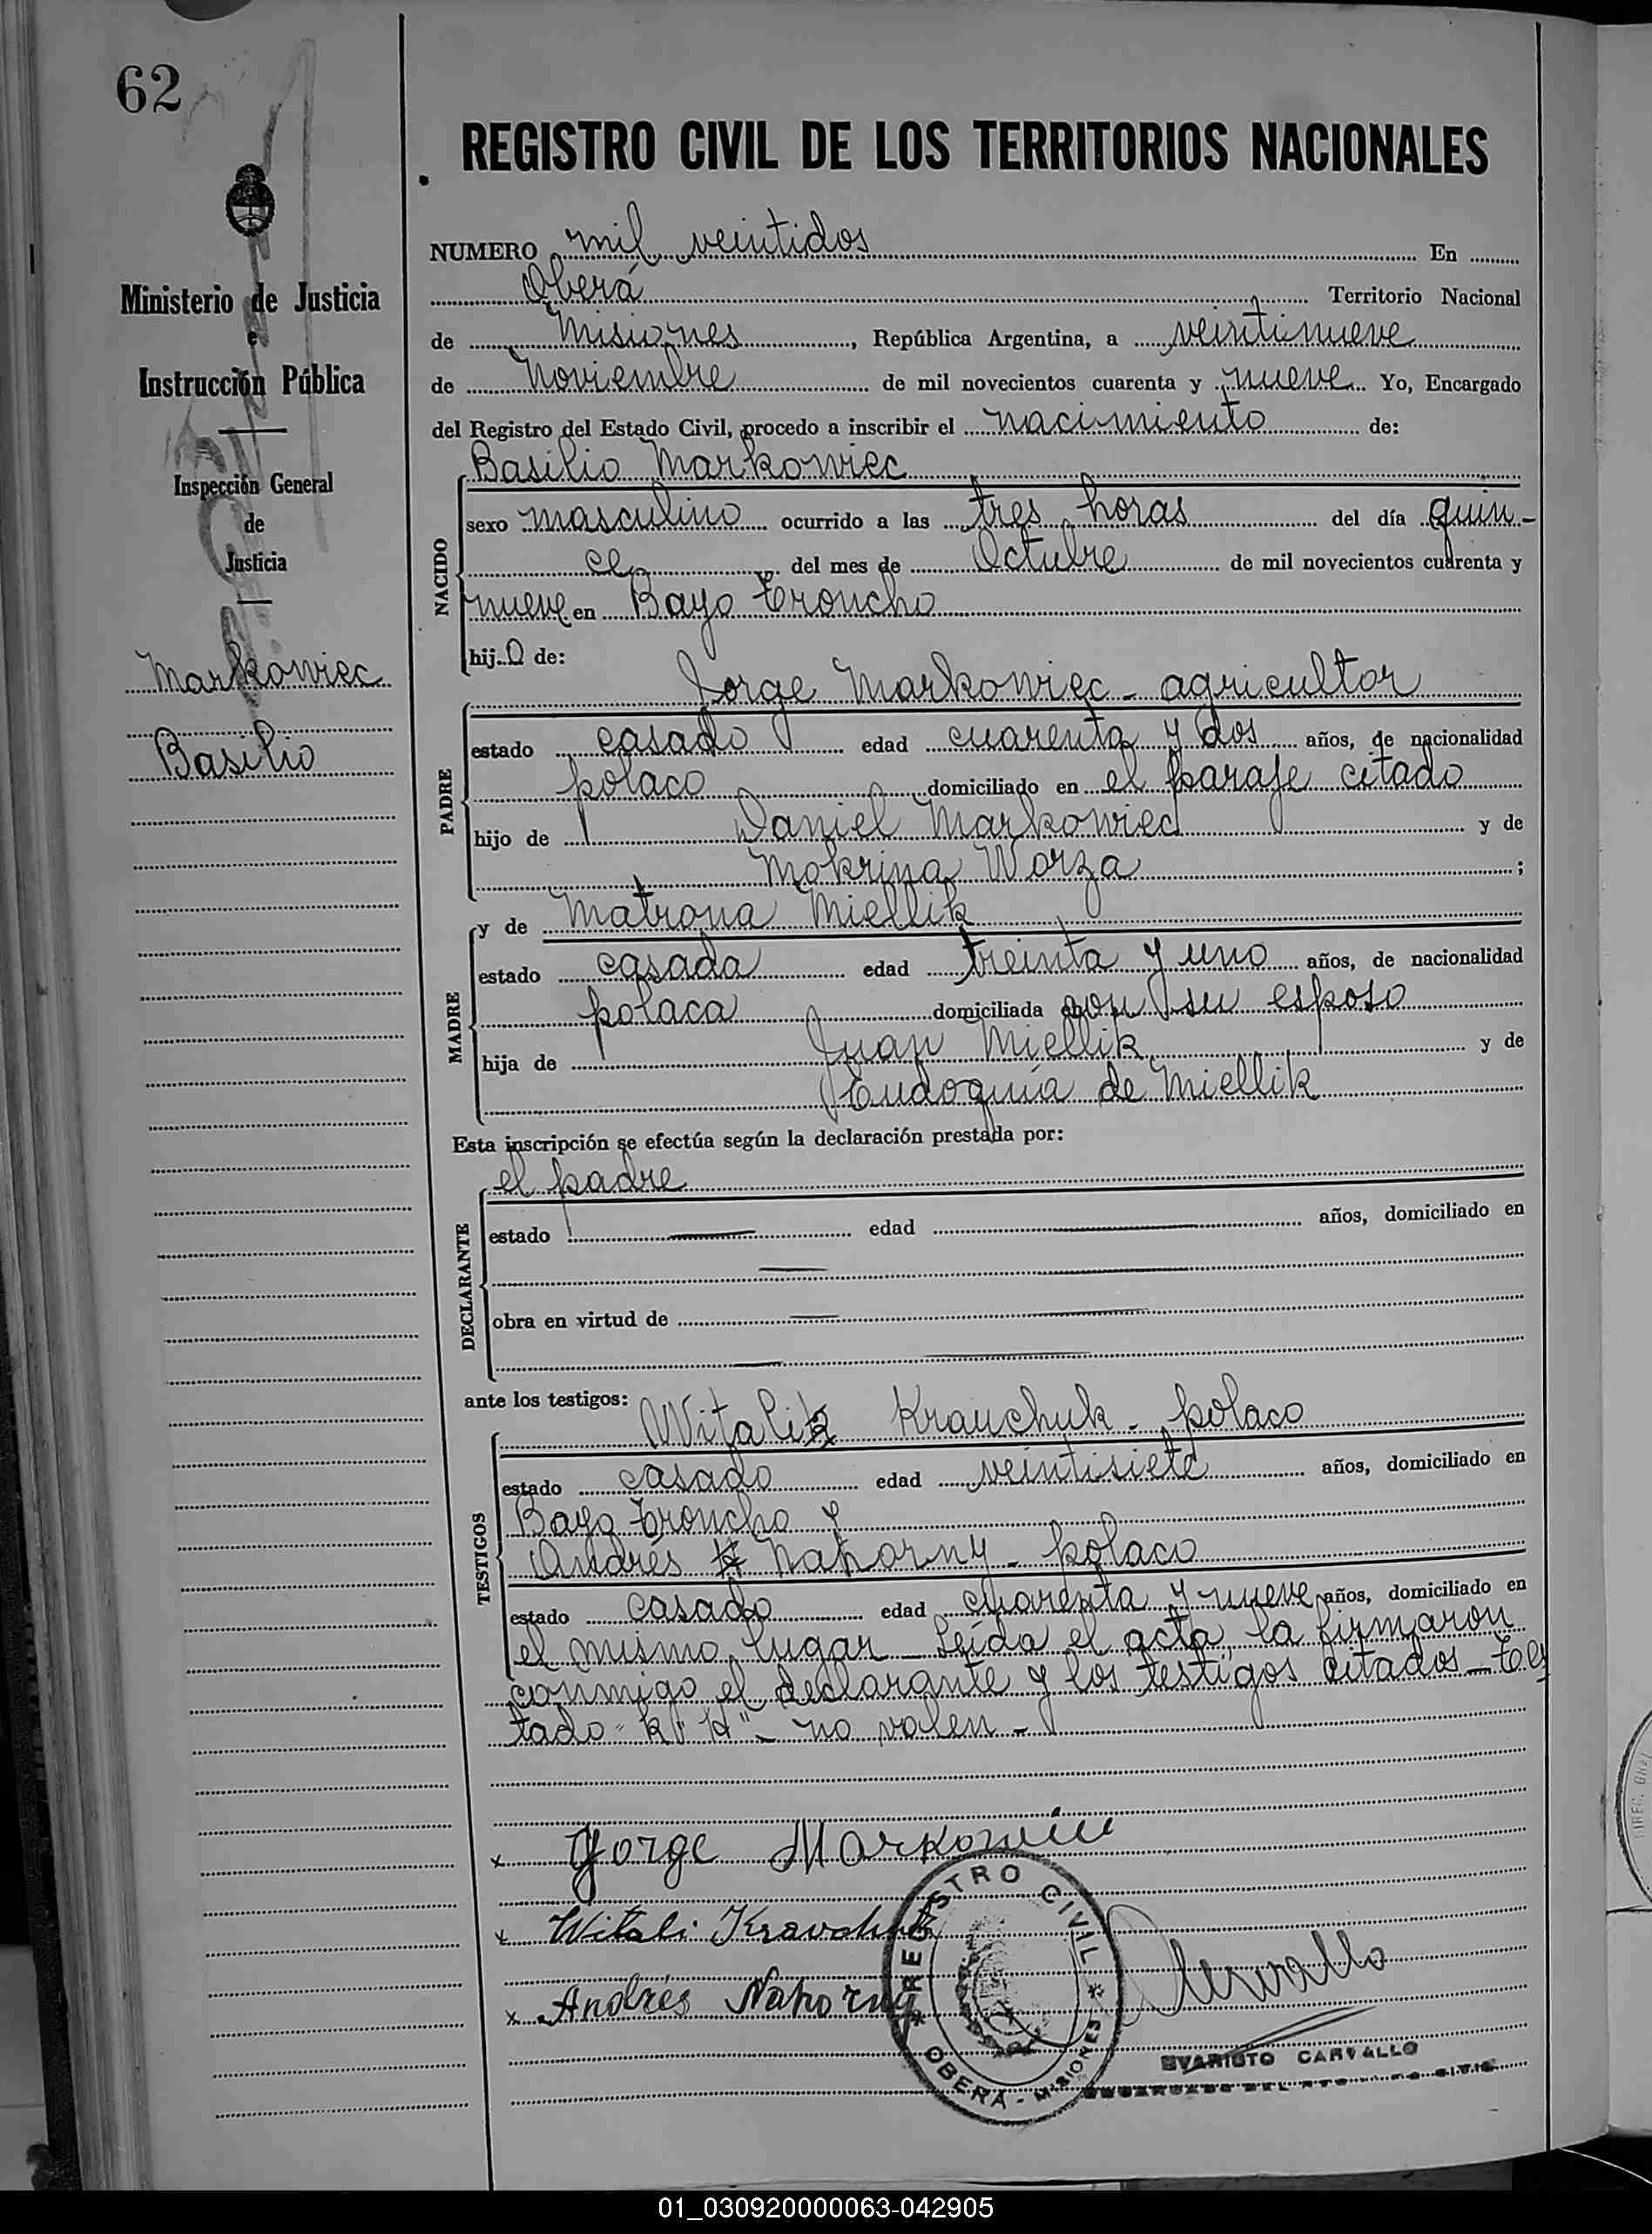 62
REGISTRO CIVIL DE LOS TERRITORIOS NACIONALES
Ministerio de Justicia
e
Instrucción Pública
Inspección General
de
Justicia
Markowiec
Basilio
NUMERO mil veintidos En
Oberá Territorio Nacional
de Misiones, República Argentina, a veintinueve
de Noviembre de mil novecientos cuarenta y nueve Yo, Encargado
del Registro del Estado Civil, procedo a inscribir el nacimiento de:
Basilio Markowiec
NACIDO
sexo masculino ocurrido a las tres horas del día quin-
ce del mes de Octubre de mil novecientos cuarenta y
nueve en Bayo Troncho
hijo de:
Jorge Markowiec - agricultor
PADRE
estado casado edad cuarenta y dos años, de nacionalidad
polaco domiciliado en el paraje citado
hijo de Daniel Markowiec y de
Mokrina Worza ;
y de Matrona Miellik
MADRE
estado casada edad treinta y uno años, de nacionalidad
polaca domiciliada con su esposo
hija de Juan Miellik y de
Eudoquia de Miellik
Esta inscripción se efectúa según la declaración prestada por:
el padre
DECLARANTE
estado edad años, domiciliado en
obra en virtud de
ante los testigos:
Witalik Krauchuk - polaco
TESTIGOS
estado casado edad veintisiete años, domiciliado en
Bayo Troncho y
Andrés H Nahorny - polaco
estado casado edad cuarenta y nueve años, domiciliado en
el mismo lugar - Leída el acta, la firmaron
conmigo el declarante y los testigos citados - Tes
tado "k, H" - no valen -
x Jorge Markowiec
x Witali Kravchuk
x Andrés Nahorny
REGISTRO CIVIL
OBERÁ - MISIONES
EVARISTO CARVALLO
01_030920000063-042905